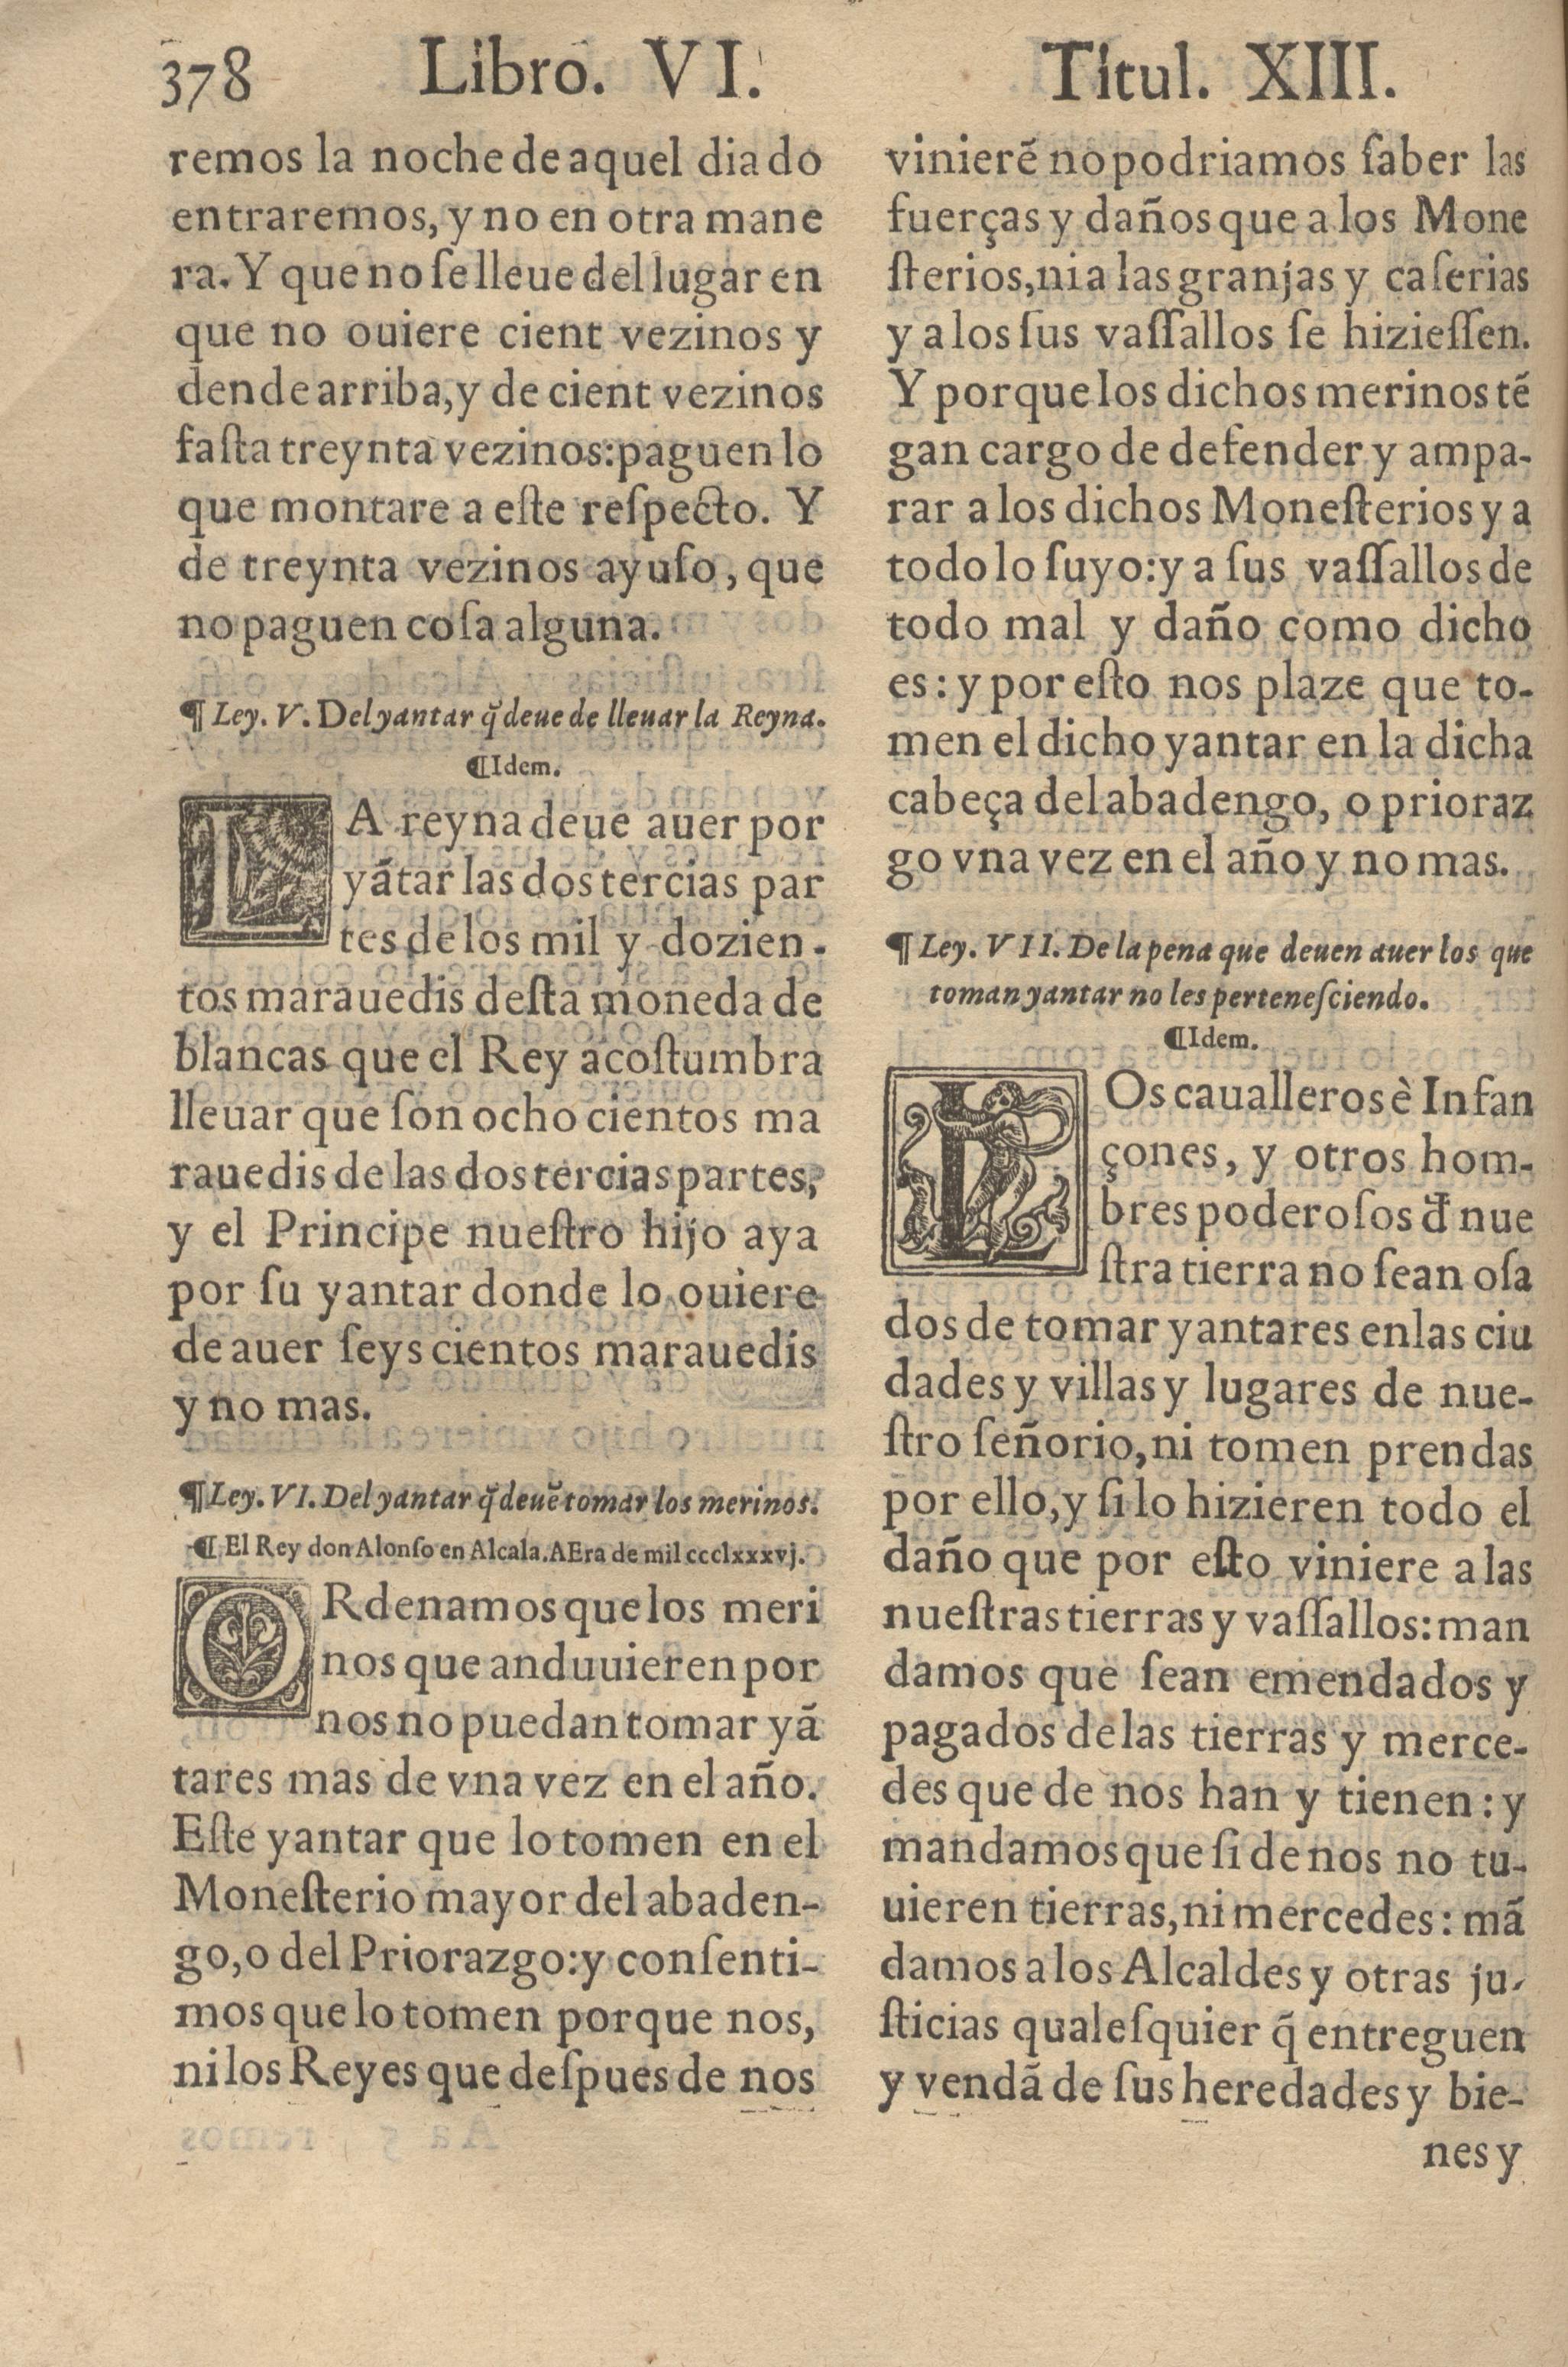 378 Libro. VI. Titul. XIII.
remos la noche de aquel dia do
entraremos, y no en otra mane
ra. Y que no ſe lleue del lugar en
que no ouiere cient vezinos y
dende arriba, y de cient vezinos
faſta treynta vezinos: paguen lo
que montare a eſte reſpecto. Y
de treynta vezinos ayuſo, que
no paguen coſa alguna.
¶ Ley. V. Del yantar q̃ deue de lleuar la Reyna.
¶Idem.
LA reyna deue auer por
yãtar las dos tercias par
tes de los mil y dozien-
tos marauedis deſta moneda de
blancas que el Rey acoſtumbra
lleuar que ſon ocho cientos ma
rauedis de las dos tercias partes,
y el Principe nueſtro hijo aya
por ſu yantar donde lo ouiere
de auer ſeys cientos marauedis
y no mas.
¶ Ley. VI. Del yantar q̃ deuẽ tomar los merinos.
¶ El Rey don Alonſo en Alcala. AEra de mil ccclxxxvj.
ORdenamos que los meri
nos que anduuieren por
nos no puedan tomar yã
tares mas de vna vez en el año.
Eſte yantar que lo tomen en el
Moneſterio mayor del abaden-
go, o del Priorazgo: y conſenti-
mos que lo tomen porque nos,
ni los Reyes que deſpues de nos
vinierẽ no podriamos ſaber las
fuerças y daños que a los Mone
ſterios, ni a las granjas y caſerias
y a los ſus vaſſallos ſe hizieſſen.
Y porque los dichos merinos tẽ
gan cargo de defender y ampa-
rar a los dichos Moneſterios y a
todo lo ſuyo: y a ſus vaſſallos de
todo mal y daño como dicho
es: y por eſto nos plaze que to-
men el dicho yantar en la dicha
cabeça del abadengo, o prioraz
go vna vez en el año y no mas.
¶ Ley. VII. De la pena que deuen auer los que
toman yantar no les perteneſciendo.
¶Idem.
LOs caualleros è Infan
çones, y otros hom-
bres poderoſos đ nue
ſtra tierra no ſean oſa
dos de tomar yantares en las ciu
dades y villas y lugares de nue-
ſtro ſeñorio, ni tomen prendas
por ello, y ſi lo hizieren todo el
daño que por eſto viniere a las
nueſtras tierras y vaſſallos: man
damos que ſean emendados y
pagados de las tierras y merce-
des que de nos han y tienen: y
mandamos que ſi de nos no tu-
uieren tierras, ni mercedes: mã
damos a los Alcaldes y otras ju-
ſticias qualeſquier q̃ entreguen
y vendã de ſus heredades y bie-
nes y